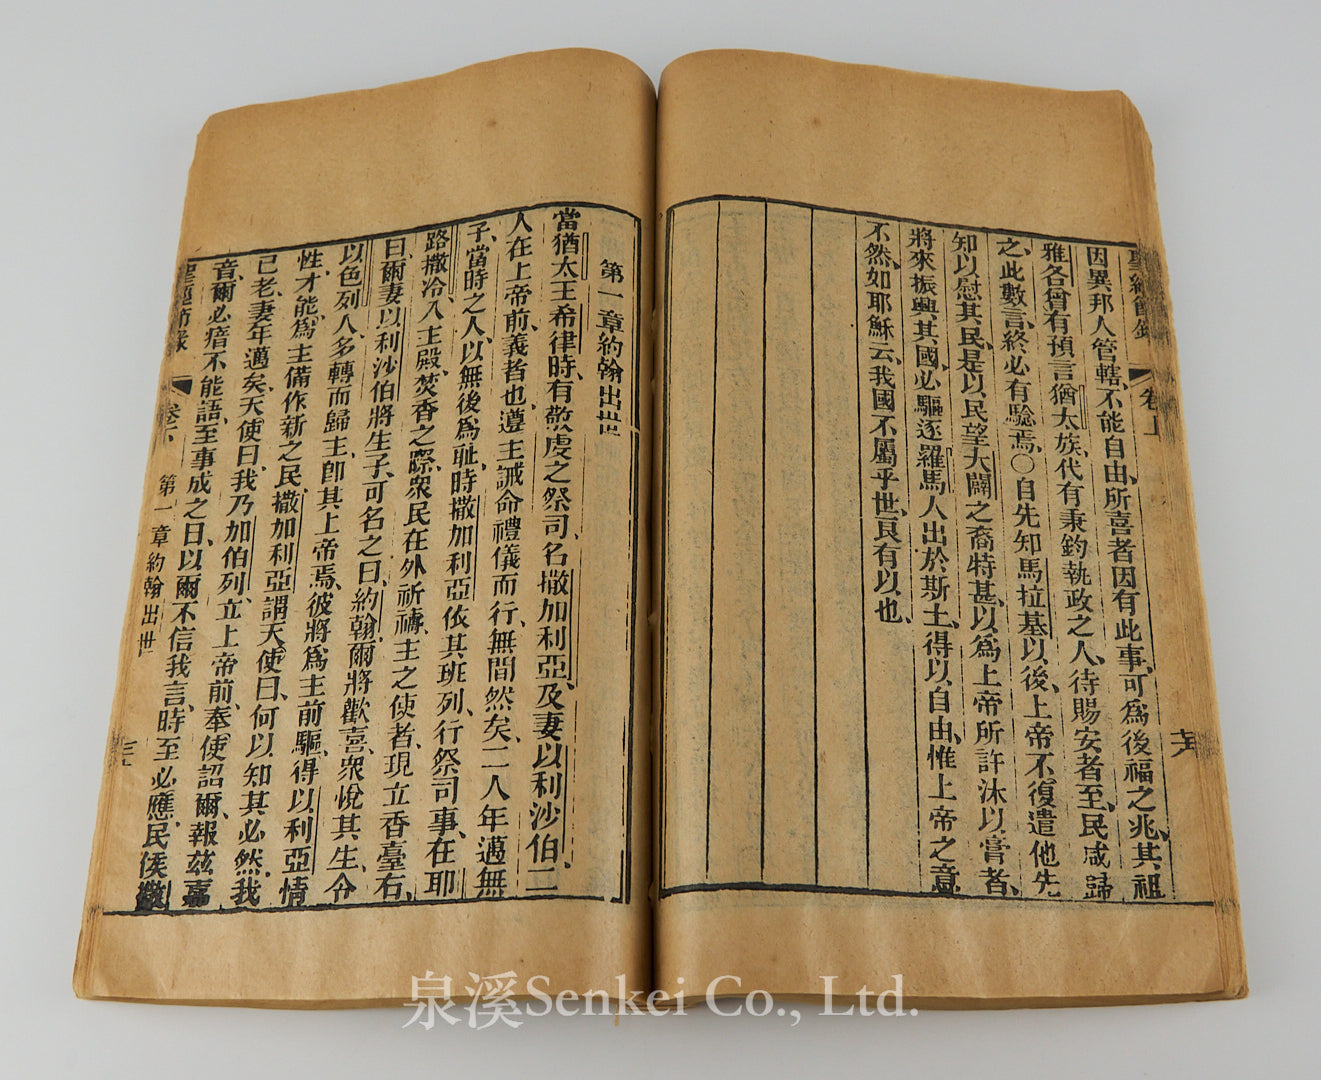 聖經節錄 卷上
因異邦人管轄、不能自由、所喜者因有此事、可爲後福之兆、其祖
雅各曾有預言猶太族、代有秉鈞執政之人、待賜安者至、民咸歸
之、此數言、終必有驗焉、○自先知馬拉基以後、上帝不復遣他先
知以慰其民、是以民望大闢之裔特甚、以爲上帝所許沐以膏者、
將來振興其國、必驅逐羅馬人出於斯土、得以自由、惟上帝之意
不然、如耶穌云、我國不屬乎世、良有以也、
第一章約翰出世
當猶太王希律時、有敬虔之祭司、名撒加利亞、及妻以利沙伯、二
人在上帝前、義者也、遵主誡命禮儀而行、無間然矣、二人年邁無
子、當時之人、以無後爲恥、時撒加利亞依其班列、行祭司事、在耶
路撒冷入主殿、焚香之際、衆民在外祈禱、主之使者、現立香臺右、
曰、爾妻以利沙伯將生子、可名之曰、約翰、爾將歡喜、衆悅其生、令
以色列人、多轉而歸主、卽其上帝焉、彼將爲主前驅、得以利亞情
性才能、爲主備作新之民、撒加利亞謂天使曰、何以知其必然、我
已老、妻年邁矣、天使曰、我乃加伯列、立上帝前、奉使詔爾、報玆嘉
音、爾必瘖不能語、至事成之日、以爾不信我言、時至必應、民俟撒
聖經節錄 卷 第一章約翰出世
泉溪Senkei Co., Ltd.